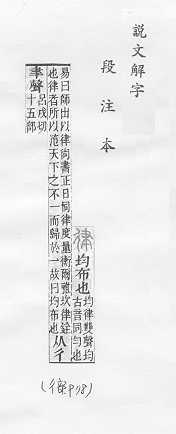 說文解字
段注本
律均布也均律雙聲均
古音同勻也
易曰師出以律尚書正日同律度量衡爾雅坎律銓
也律者所以范天下之不一而歸於一故曰均布也从彳
聿聲呂戌切
十五部